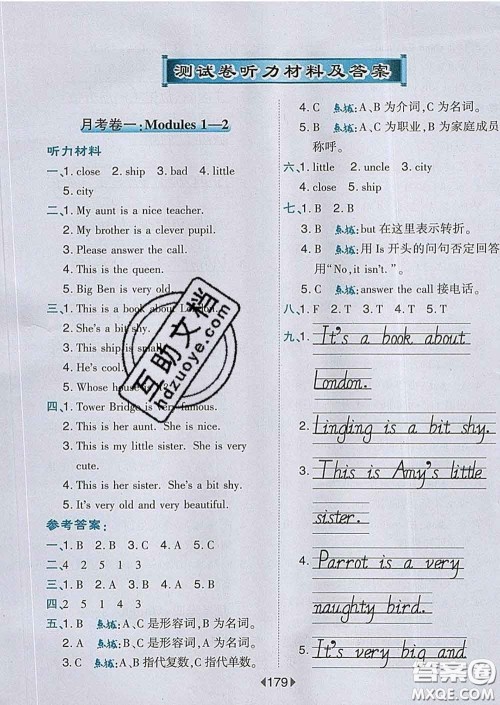 测试卷听力材料及答案
月考卷一:Modules 1—2
听力材料
一、1. close 2. ship 3. bad 4. little
5. city
二、1. My aunt is a nice teacher.
2. My brother is a clever pupil.
3. Please answer the call.
4. This is the queen.
5. Big Ben is very old.
三、1. This is a book about London.
2. She's a bit shy.
3. This ship is small.
4. He's cool.
5. Whose house is it?
四、1. Tower Bridge is very famous.
2. This is her aunt. She is nice.
3. This is my little sister. She is very
cute.
4. This is her sister. She's a bit shy.
5. It's very old and beautiful.
参考答案:
一、1. B 2. B 3. C 4. A 5. C
二、4 2 5 1 3
三、1. B 2. A 3. C 4. A 5. B
四、2 5 1 4 3
五、1. B 点拨:A、C是形容词,B为名词。
2. A 点拨:B、C是形容词,A为名词。
3. C 点拨:A、B指代复数,C指代单数。
4. C 点拨:A、B为介词,C为名词。
5. A 点拨:B、C为职业,B为家庭成员
称呼。
六、1. little 2. uncle 3. city
4. close 5. ship
七、1. B 2. B
3. B 点拨:but在这里表示转折。
4. B 点拨:用Is开头的问句否定回答
用“No, it isn't.”。
5. B 点拨:answer the call 接电话。
八、1. F 2. T 3. T 4. T 5. T
九、1. It's a book about
London.
2. Lingling is a bit shy.
3. This is Amy's little
sister.
4. Parrot is a very
naughty bird.
5. It's very big and
179
互助文档
hdzuoye.com
答案圈
MXQE.COM